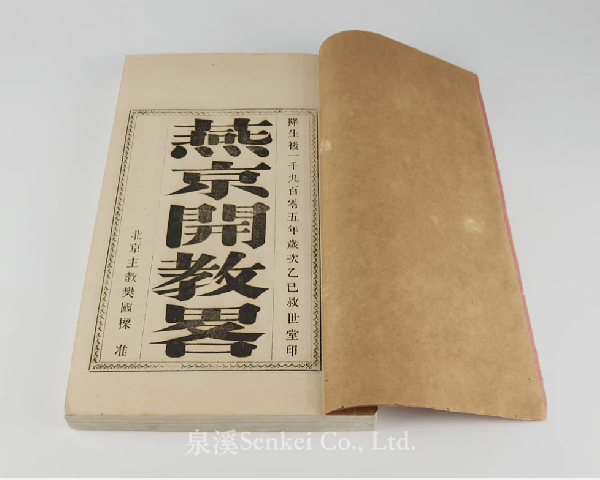 降生後一千九百零五年歲次乙巳救世堂印
燕京開教畧
北京主教樊國樑 准
泉溪Senkei Co., Ltd.